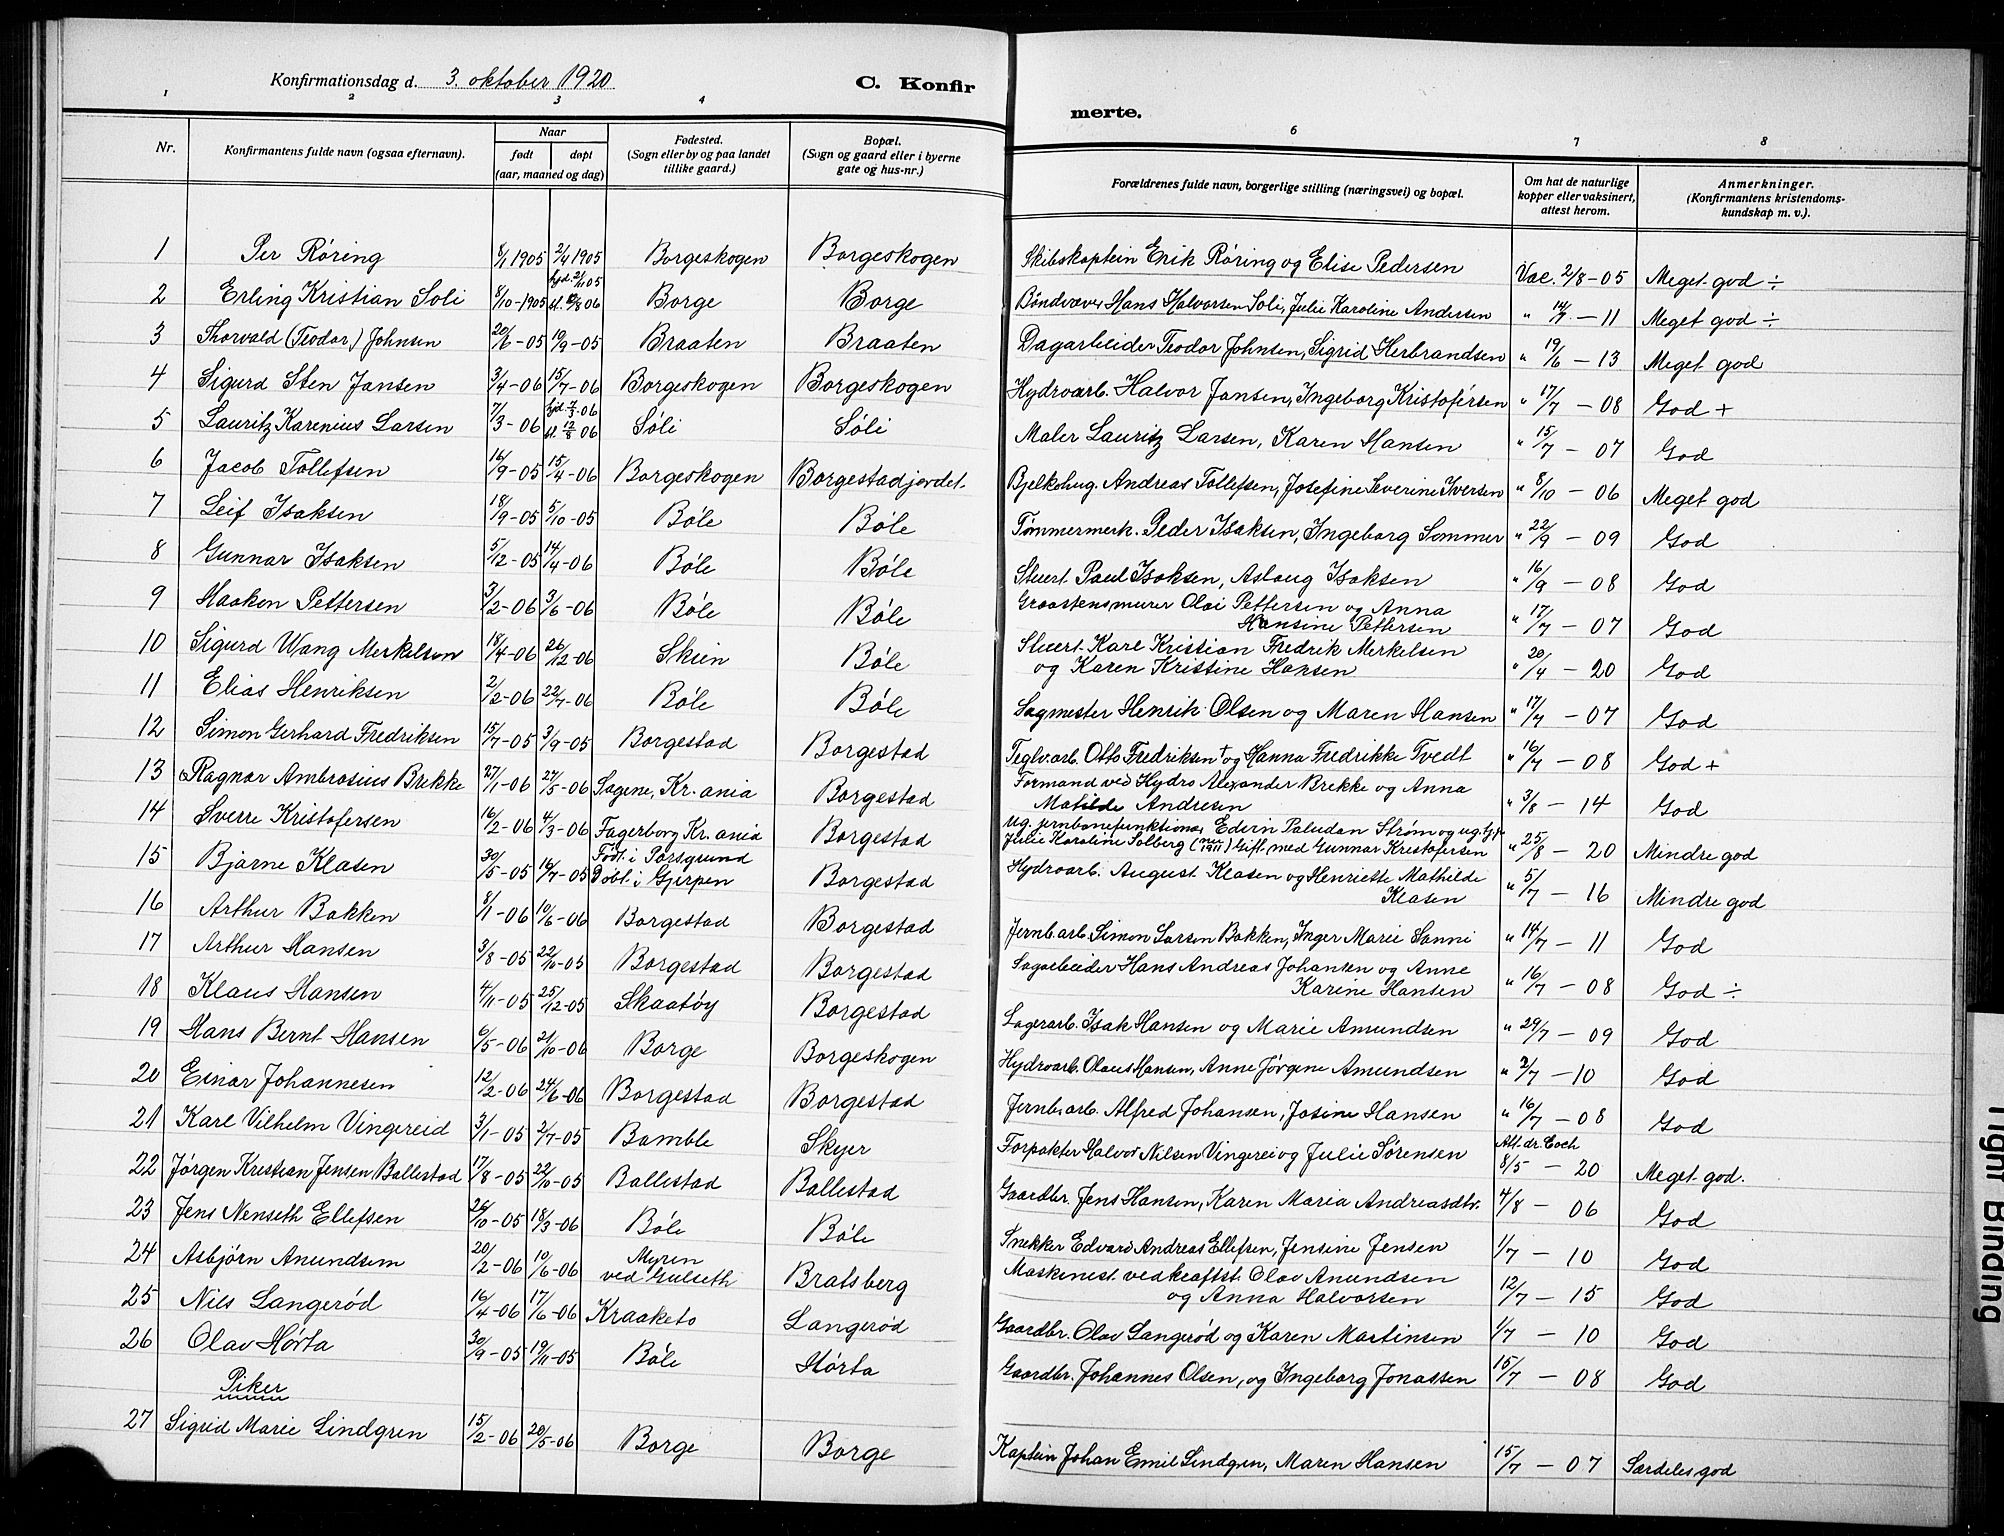 Konfirmationsdag d. 3. oktober 1920
C. Konfir
merte.
1 2 3 4 6 7 8
Nr.
Konfirmantens fulde navn (ogsaa efternavn).
Naar
født døpt
(aar, maaned og dag)
Fødested.
(Sogn eller by og paa landet
tillike gaard.)
Bopæl.
(Sogn og gaard eller i byerne
gate og hus-nr.)
Forældrenes fulde navn, borgerlige stilling (næringsvei) og bopæl.
Om hat de naturlige
kopper eller vaksinert,
attest herom.
Anmerkninger.
(Konfirmantens kristendoms-
kundskap m. v.).
1 Per Røring 8/1 1905 2/4 1905 Borgeskogen Borgeskogen Skibskaptein Erik Røring og Elise Pedersen Vac. 2/8-05 Meget god ÷
2 Erling Kristian Soli 8/10-1905 hjd. 2/11 05 Borge Borge Bøndvæver Hans Halvorsen Soli, Julie Karoline Andersen " 14/7 - 11 Meget god ÷
3 Thorvald (Teodor) Johnsen 20/6-05 10/9-05 Braaten Braaten Dagarbeider Teodor Johnsen, Sigrid Herbrandsen " 19/6 - 13 Meget god
4 Sigurd Sten Jansen 3/4-06 15/7-06 Borgeskogen Borgeskogen Hydroarb. Halvor Jansen, Ingeborg Kristofersen " 17/7 - 08 God +
5 Lauritz Karenius Larsen 7/3-06 hjd. 7/3-06 st. 12/8 06 Søli Søli Maler Lauritz Larsen, Karen Hansen " 15/7 - 07 God
6 Jacob Tollefsen 16/9-05 15/4-06 Borgeskogen Borgestadjordet. Bjelkehug. Andreas Tollefsen, Josefine Severine Iversen " 8/10 - 06 Meget god
7 Leif Isaksen 18/9-05 5/10-05 Bøle Bøle Tømmermerk. Peder Isaksen, Ingeborg Sommer " 22/9 - 09 God
8 Gunnar Isaksen 5/12-05 14/4-06 Bøle Bøle Stuert Paul Isaksen, Aslaug Isaksen " 16/9 - 08 God
9 Haakon Pettersen 3/2-06 3/6-06 Bøle Bøle Graastensmurer Olai Pettersen og Anna
Hansine Pettersen " 17/7 - 07 God
10 Sigurd Wang Merkelsen 18/4-06 26/12-06 Skien Bøle Stuert Karl Kristian Fredrik Merkelsen
og Karen Kristine Hansen " 20/4 - 20 God
11 Elias Henriksen 2/2-06 22/7-06 Bøle Bøle Sagmester Henrik Olsen og Maren Hansen " 17/7 - 07 God
12 Simon Gerhard Fredriksen 15/7-05 3/9-05 Borgestad Borgestad Teglv.arb. Otto Fredriksen † og Hanna Fredrikke Tvedt " 16/7 - 08 God +
13 Ragnar Ambrosius Brekke 27/1-06 27/5-06 Sagene, Kr.ania Borgestad Formand ved Hydro Alexander Brekke og Anna
Matilde Andresen " 3/8 - 14 God
14 Sverre Kristofersen 16/2-06 4/3-06 Fagerborg Kr.ania Borgestad Ug. jernbanefunktionær Edvin Paludan Strøm og ug. tj.p.
Julie Karoline Solberg Gift med Gunnar Kristofersen " 25/8 - 20 Mindre god
15 Bjarne Klasen 30/5-05 16/7-05 Født i Porsgrund
Døbt i Gjerpen Borgestad Hydroarb. August Klasen og Henriette Mathilde
Klasen " 5/7 - 16 Mindre god
16 Arthur Bakken 8/1-06 10/6-06 Borgestad Borgestad Jernb.arb. Simon Larsen Bakken, Inger Marie Sanni " 14/7 - 11 God
17 Arthur Hansen 3/8-05 22/10-05 Borgestad Borgestad Sagarbeider Hans Andreas Johansen og Anne
Karine Hansen " 16/7 - 08 God ÷
18 Klaus Hansen 4/11-05 25/12-05 Skaatøy Borgestad Lagerarb. Isak Hansen og Marie Amundsen " 29/7 - 09 God
19 Hans Bernt Hansen 6/5-06 21/10-06 Borge Borgeskogen Hydroarb. Olaus Hansen, Anne Jørgine Amundsen " 2/7 - 10 God
20 Einar Johannesen 12/2-06 24/6-06 Borgestad Borgestad Jernb.arb. Alfred Johansen, Josine Hansen " 16/7 - 08 God
21 Karl Vilhelm Vingereid 3/1-05 2/7-05 Bamble Skyer Forpakter Halvor Nilsen Vingerei og Julie Sørensen Att. dr. Coch
8/5 - 20 Meget god.
22 Jørgen Kristian Jensen Ballestad 17/8-05 22/10-05 Ballestad Ballestad Gaardbr. Jens Hansen, Karen Maria Andreasdtr. 4/8 - 06 God
23 Jens Nenseth Ellefsen 26/10-05 18/3-06 Bøle Bøle Snekker Edvard Andreas Ellefsen, Jensine Jensen 1/7 - 10 God
24 Asbjørn Anundsen 20/2-06 10/6-06 Myren
ved Gulseth Bratsberg Maskinest. ved kraftst. Olav Anundsen
og Anna Halvorsen 12/7 - 15 God
25 Nils Langerød 16/4-06 17/6-06 Kraaketo Langerød Gaardbr. Olav Langerød og Karen Martinsen 1/7 - 10 God
26 Olav Hørta 30/9-05 19/11-05 Bøle Hørta Gaardbr. Johannes Olsen, og Ingeborg Jonassen 15/7 - 08 God
Piker
27 Sigrid Marie Lindgren 15/2-06 20/5-06 Borge Borge Kaptein Johan Emil Lindgren, Maren Hansen 15/7 - 07 Særdeles god
Tight Binding